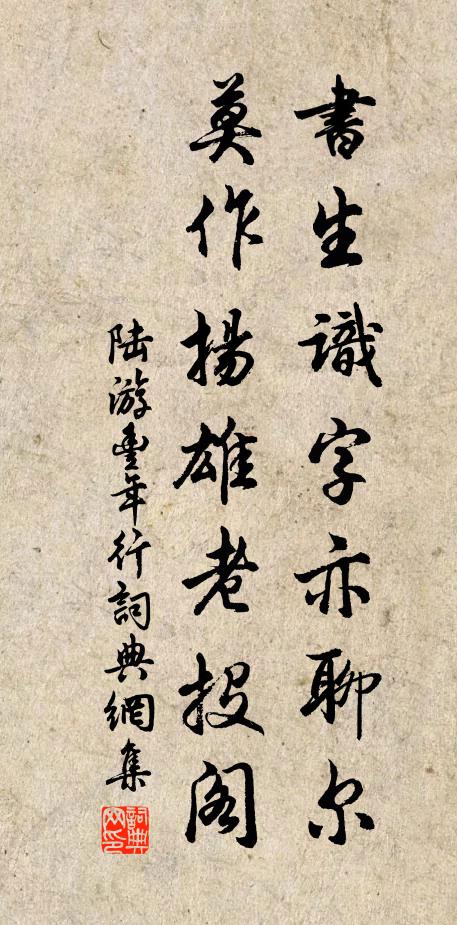 書生識字亦聊尔
莫作揚雄老投阁
陆游豐年行詞典網集
詞典网印